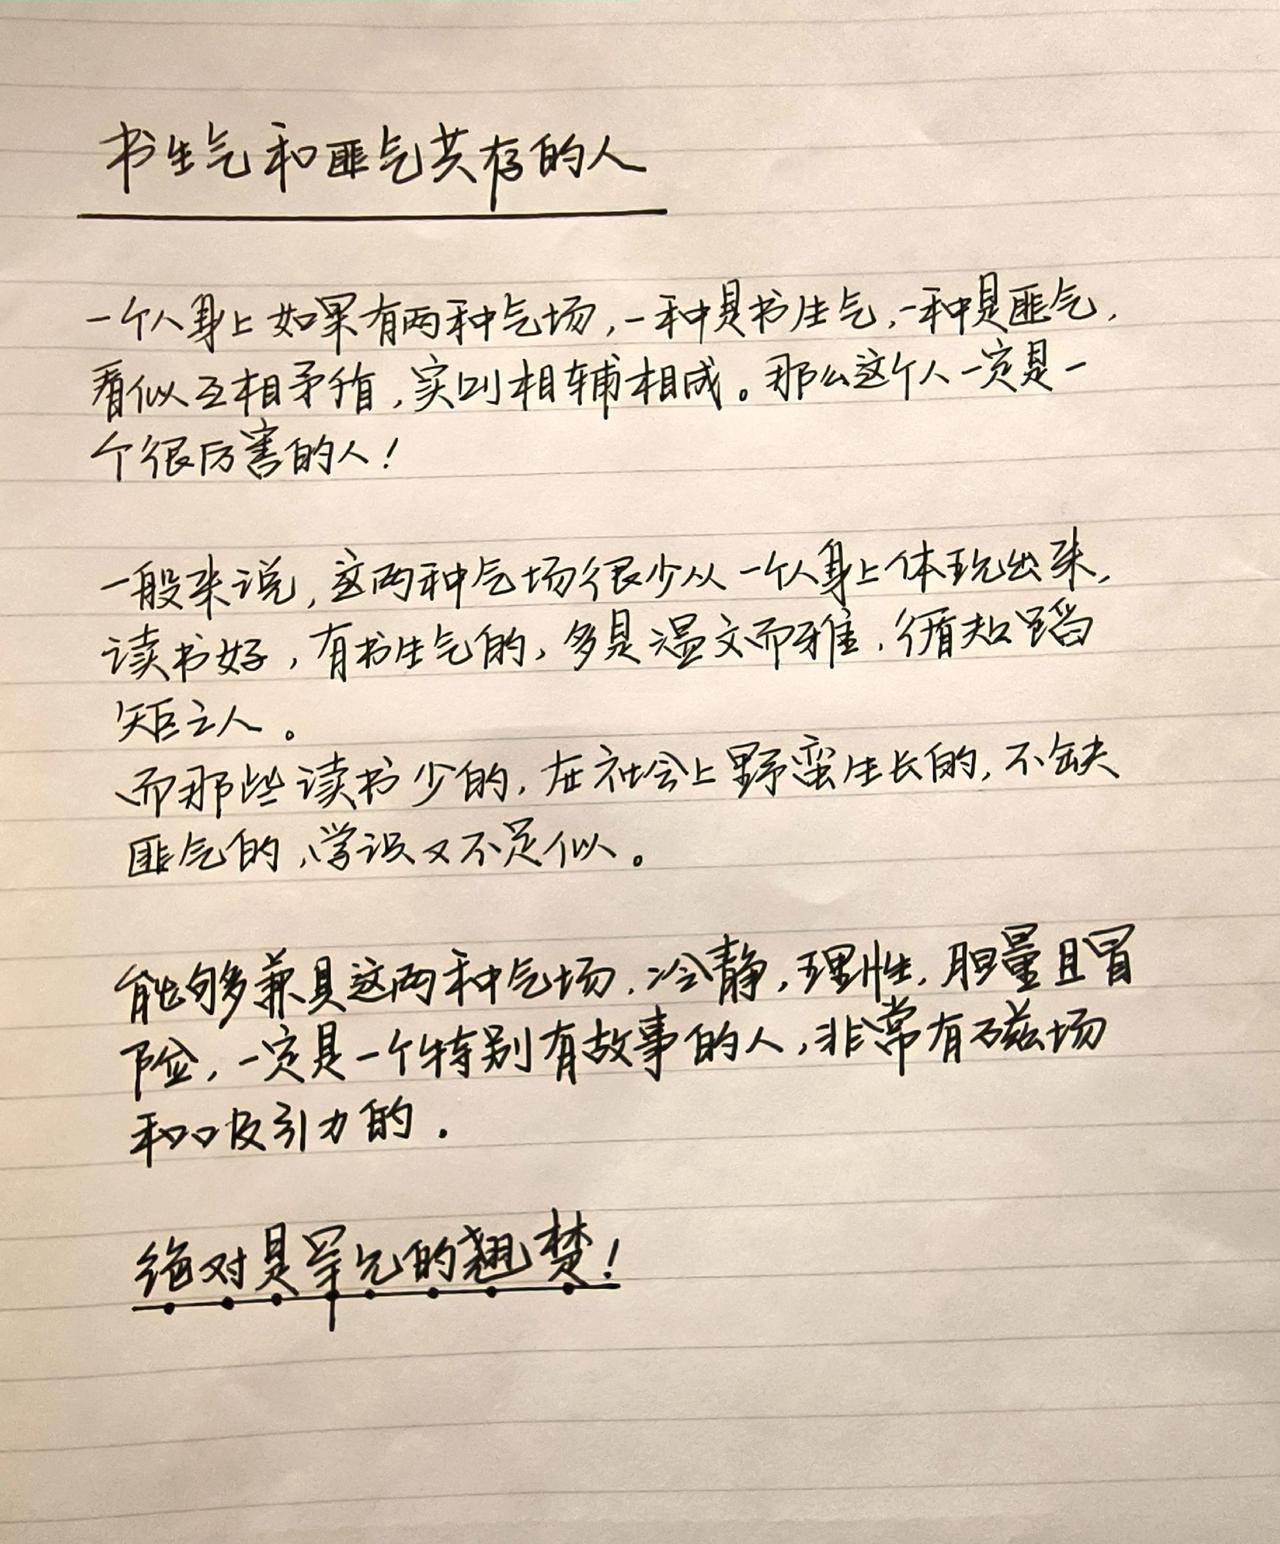 书生气和匪气共存的人
一个人身上如果有两种气场，一种是书生气，一种是匪气，
看似互相矛盾，实则相辅相成。那么这个人一定是一
个很厉害的人！
一般来说，这两种气场很少从一个人身上体现出来，
读书好，有书生气的，多是温文而雅，循规蹈
矩之人。
而那些读书少的，在社会上野蛮生长的，不缺
匪气的，学识又不足似。
能够兼具这两种气场，冷静，理性，胆量且冒
险，一定是一个特别有故事的人，非常有磁场
和吸引力的．
绝对是罕见的翘楚！